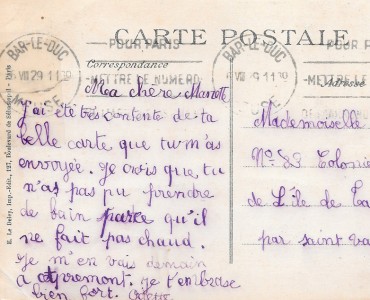 CARTE POSTALE
POUR PARIS
METTRE LE NUMERO
BAR-LE-DUC
MEUSE
VII 29 11
BAR-LE-DUC
METTRE LE
Correspondance
Adresse
Ma chère Manotte
J'ai été très contente de ta
belle carte que tu m'as
envoyée. Je crois que tu
n'as pas pu prendre
de bain parce qu'il
ne fait pas chaud.
Je m'en vais demain
à Apremont. Je t'embrasse
bien fort. Odette
Mademoiselle
No 83 Colonie
de L'île de
par saint
E. Le Deley, Imp.-Édit., 127, Boulevard de Sébastopol - Paris